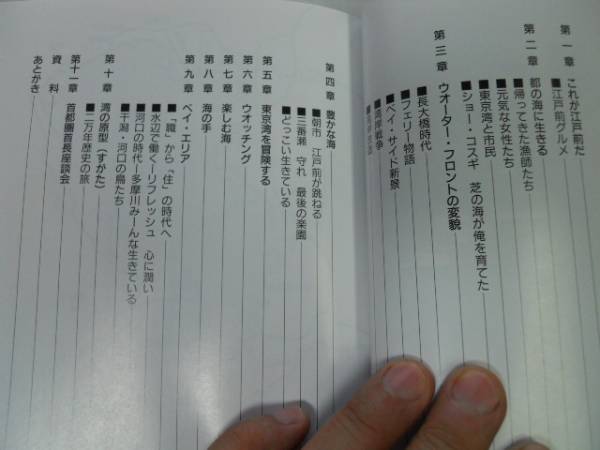 第一章 これが江戸前だ
■江戸前グルメ
第二章 都の海に生きる
■帰ってきた漁師たち
■元気な女性たち
■東京湾と市民
■ショー・コスギ 芝の海が俺を育てた
第三章 ウオーター・フロントの変貌
■長大橋時代
■フェリー物語
■ベイ・サイド新景
■湾岸戦争
第四章 豊かな海
■朝市 江戸前が跳ねる
■三番瀬 守れ 最後の楽園
■どっこい生きている
第五章 東京湾を冒険する
第六章 ウオッチング
第七章 楽しむ海
第八章 海の手
第九章 ベイ・エリア
■「職」から「住」の時代へ
■水辺で働く―リフレッシュ 心に潤い
■河口の時代―多摩川みーんな生きている
■干潟・河口の鳥たち
第十章 湾の原型(すがた)
■二万年歴史の旅
第十一章 首都圏首長座談会
資料
あとがき